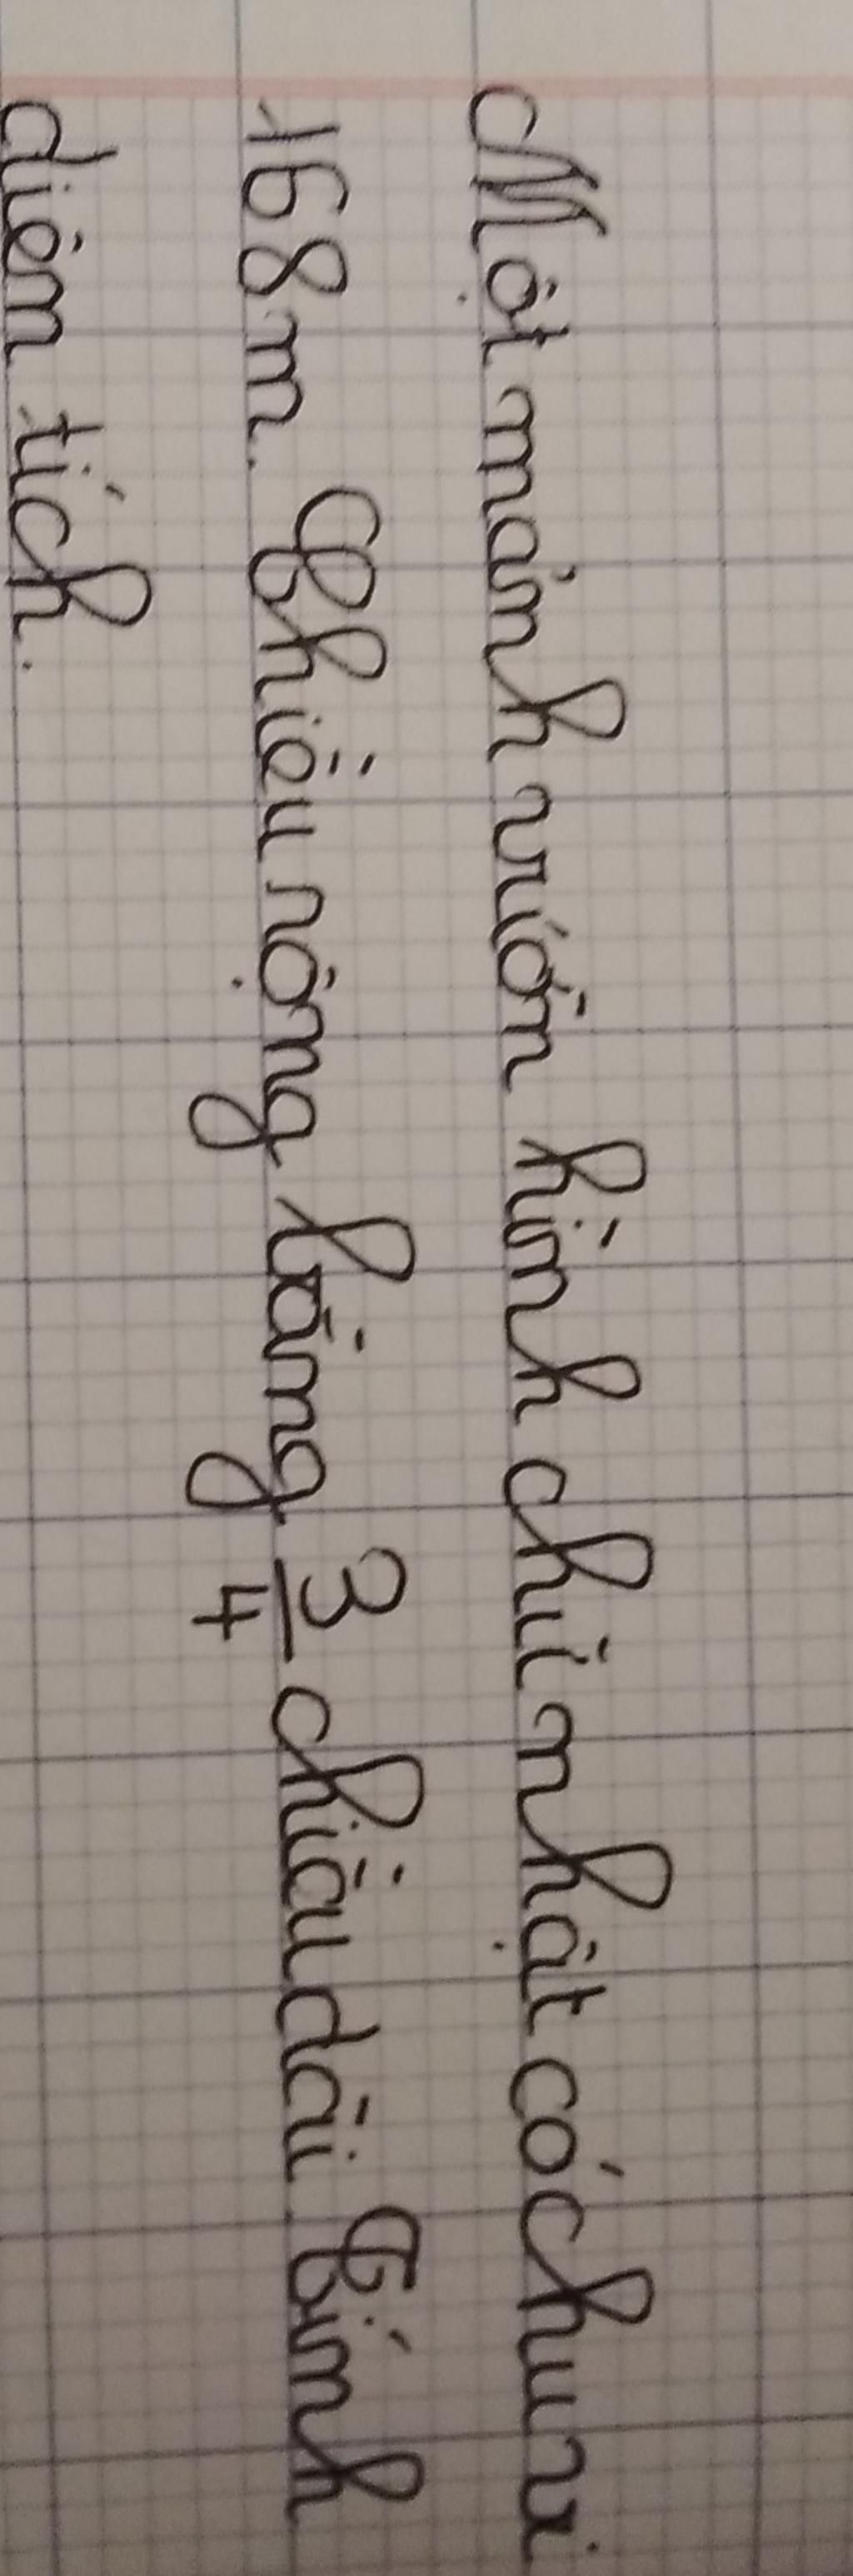 Một mảnh vườn hình chữ nhật có chu vi
168m. Chiều rộng bằng 3/4 chiều dài. Tính
diện tích.